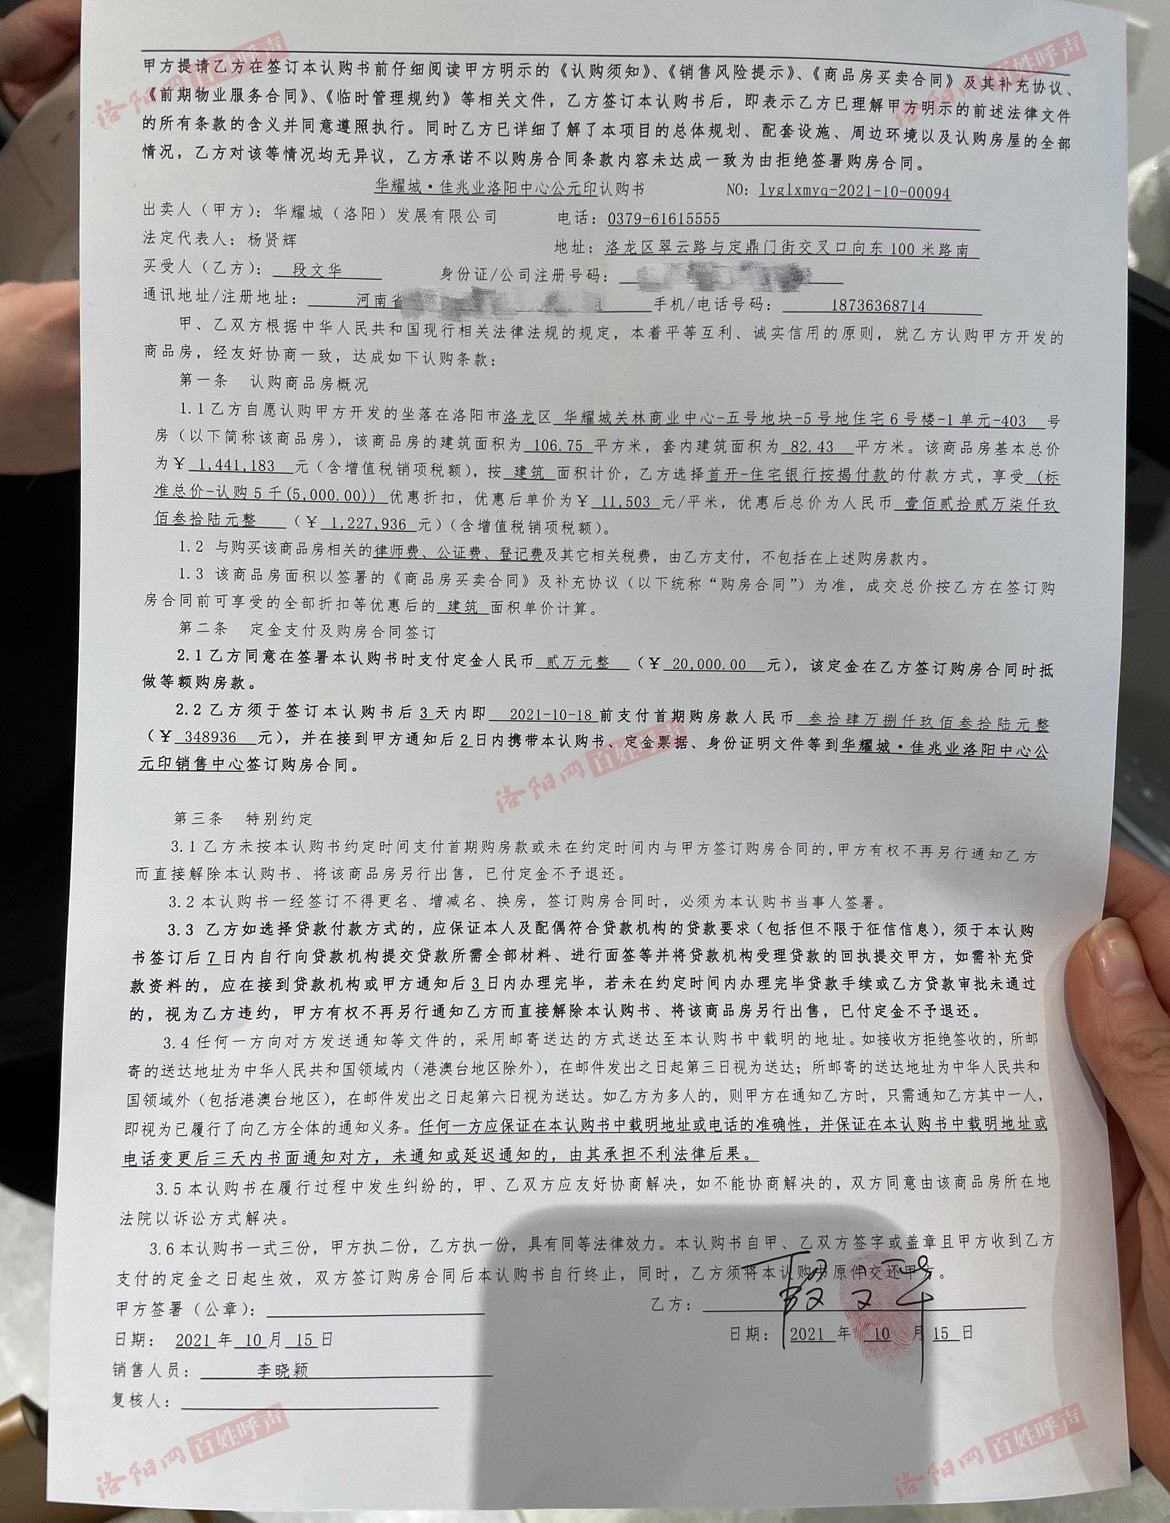 甲方提请乙方在签订本认购书前仔细阅读甲方明示的《认购须知》、《销售风险提示》、《商品房买卖合同》及其补充协议、
《前期物业服务合同》、《临时管理规约》等相关文件，乙方签订本认购书后，即表示乙方已理解甲方明示的前述法律文件
的所有条款的含义并同意遵照执行。同时乙方已详细了解了本项目的总体规划、配套设施、周边环境以及认购房屋的全部
情况，乙方对该等情况均无异议，乙方承诺不以购房合同条款内容未达成一致为由拒绝签署购房合同。
华耀城·佳兆业洛阳中心公元印认购书 NO：lyglxmyq-2021-10-00094
出卖人（甲方）：华耀城（洛阳）发展有限公司 电话：0379-61615555
法定代表人：杨贤辉 地址：洛龙区翠云路与定鼎门街交叉口向东100米路南
买受人（乙方）：段文华 身份证/公司注册号码：
通讯地址/注册地址：河南省 手机/电话号码：18736368714
甲、乙双方根据中华人民共和国现行相关法律法规的规定，本着平等互利、诚实信用的原则，就乙方认购甲方开发的
商品房，经友好协商一致，达成如下认购条款：
第一条 认购商品房概况
1.1乙方自愿认购甲方开发的坐落在洛阳市洛龙区 华耀城关林商业中心-五号地块-5号地住宅6号楼-1单元-403 号
房（以下简称该商品房），该商品房的建筑面积为 106.75 平方米，套内建筑面积为 82.43 平方米。该商品房基本总价
为￥ 1,441,183 元（含增值税销项税额），按 建筑 面积计价，乙方选择首开-住宅银行按揭付款的付款方式，享受 (标
准总价-认购5千(5,000.00)) 优惠折扣，优惠后单价为￥ 11,503 元/平米，优惠后总价为人民币 壹佰贰拾贰万柒仟玖
佰叁拾陆元整 （￥ 1,227,936 元）（含增值税销项税额）。
1.2 与购买该商品房相关的律师费、公证费、登记费及其它相关税费，由乙方支付，不包括在上述购房款内。
1.3 该商品房面积以签署的《商品房买卖合同》及补充协议（以下统称“购房合同”）为准，成交总价按乙方在签订购
房合同前可享受的全部折扣等优惠后的 建筑 面积单价计算。
第二条 定金支付及购房合同签订
2.1乙方同意在签署本认购书时支付定金人民币 贰万元整 （￥ 20,000.00 元），该定金在乙方签订购房合同时抵
做等额购房款。
2.2乙方须于签订本认购书后3天内即 2021-10-18 前支付首期购房款人民币 叁拾肆万捌仟玖佰叁拾陆元整
（￥ 348936 元），并在接到甲方通知后2日内携带本认购书、定金票据、身份证明文件等到华耀城·佳兆业洛阳中心公
元印销售中心签订购房合同。
第三条 特别约定
3.1乙方未按本认购书约定时间支付首期购房款或未在约定时间内与甲方签订购房合同的，甲方有权不再另行通知乙方
而直接解除本认购书、将该商品房另行出售，已付定金不予退还。
3.2本认购书一经签订不得更名、增减名、换房，签订购房合同时，必须为本认购书当事人签署。
3.3 乙方如选择贷款付款方式的，应保证本人及配偶符合贷款机构的贷款要求（包括但不限于征信信息），须于本认购
书签订后7日内自行向贷款机构提交贷款所需全部材料、进行面签等并将贷款机构受理贷款的回执提交甲方，如需补充贷
款资料的，应在接到贷款机构或甲方通知后3日内办理完毕，若未在约定时间内办理完毕贷款手续或乙方贷款审批未通过
的，视为乙方违约，甲方有权不再另行通知乙方而直接解除本认购书、将该商品房另行出售，已付定金不予退还。
3.4任何一方向对方发送通知等文件的，采用邮寄送达的方式送达至本认购书中载明的地址。如接收方拒绝签收的，所邮
寄的送达地址为中华人民共和国领域内（港澳台地区除外），在邮件发出之日起第三日视为送达；所邮寄的送达地址为中华人民共和
国领域外（包括港澳台地区），在邮件发出之日起第六日视为送达。如乙方为多人的，则甲方在通知乙方时，只需通知乙方其中一人，
即视为已履行了向乙方全体的通知义务。任何一方应保证在本认购书中载明地址或电话的准确性，并保证在本认购书中载明地址或
电话变更后三天内书面通知对方，未通知或延迟通知的，由其承担不利法律后果。
3.5本认购书在履行过程中发生纠纷的，甲、乙双方应友好协商解决，如不能协商解决的，双方同意由该商品房所在地
法院以诉讼方式解决。
3.6本认购书一式三份，甲方执二份，乙方执一份，具有同等法律效力。本认购书自甲、乙双方签字或盖章且甲方收到乙方
支付的定金之日起生效，双方签订购房合同后本认购书自行终止，同时，乙方须将本认购书原件交还甲方。
甲方签署（公章）： 乙方：段文华
日期： 2021 年 10 月 15 日 日期： 2021 年 10 月 15 日
销售人员： 李晓颖
复核人：
洛阳网 百姓呼声
洛阳网 百姓呼声
洛阳网 百姓呼声
洛阳网 百姓呼声
洛阳网 百姓呼声